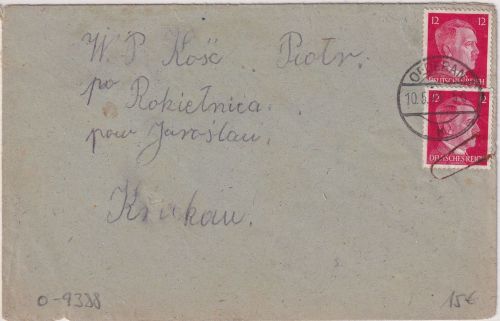 W P Kość Piotr.
po Rokietnica.
pow Jarosław.
Krakau!
12 12
DEUTSCHES REICH
10.6
12 12
DEUTSCHES REICH
0-9388
15€